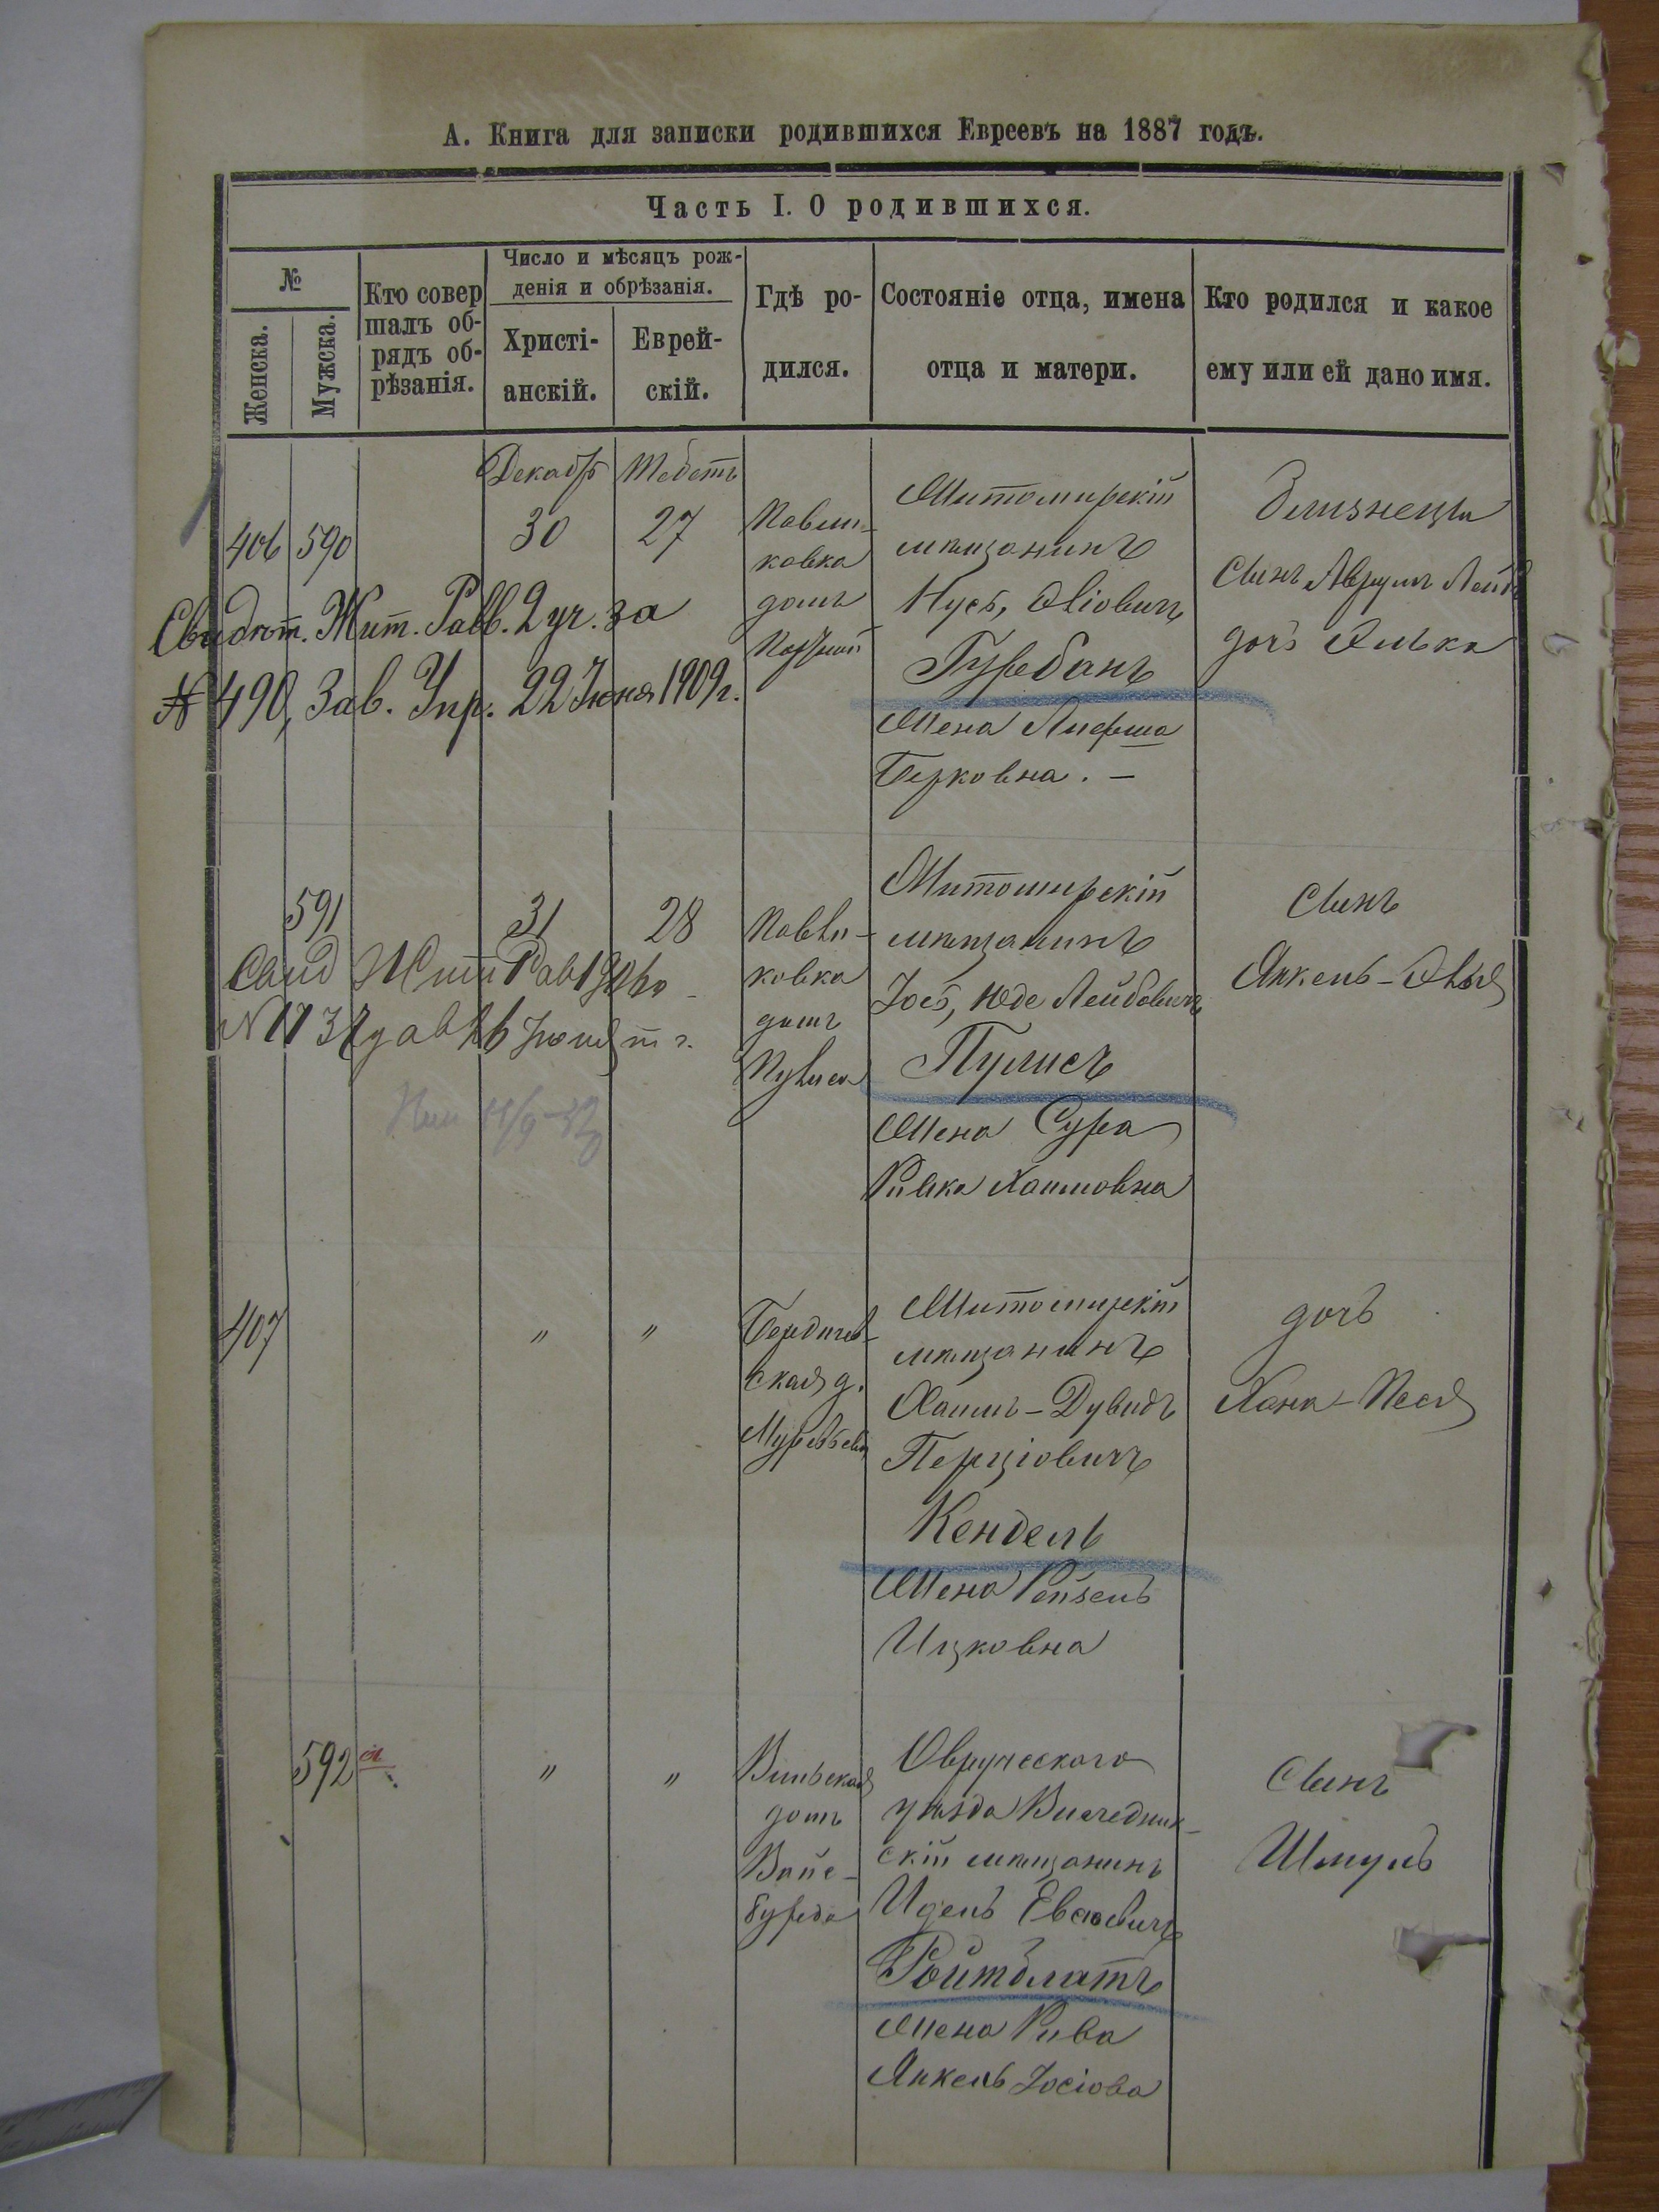 А. Книга для записки родившихся Евреевъ на 1887 годъ.
Часть I. О родившихся.
№
Женска.
Мужска.
Кто совер
шалъ об-
рядъ об-
рѣзанія.
Число и мѣсяцъ рож-
денія и обрѣзанія.
Христі-
анскій.
Еврей-
скій.
Гдѣ ро-
дился.
Состояніе отца, имена
отца и матери.
Кто родился и какое
ему или ей дано имя.
406 590
Декабрь
30
Тебетъ
27
ковка
домъ
Житомирскій
мѣщанинъ
Нусь,
Гурбанъ
жена
Берковна. —
близнецы
Сынъ Аврумъ Лейбъ
дочь Элька
Свидѣт. Жит. Рабб. 2 уч. за
№ 490, Зав. Упр. 22 Іюня 1909 г.
591
31
28
Павли-
ковка
домъ
Пулиса
Житомирскій
мѣщанинъ
Іось, Юде Лейбовичъ
Пулисъ
жена Сура
Ривка Хаимовна
Сынъ
Янкель-
Свид Жит Раб
407
"
"
Бердичев-
ская д.
Житомирскій
мѣщанинъ
Хаимъ-Дувидъ
Перціовичъ
Кендель
жена Рейзель
Ицковна
дочь
Хана-Песя
592
"
"
Вильская
домъ
Вайс-
бурда
Овручскаго
уѣзда
скій мѣщанинъ
Идель
Ройтблатъ
жена Рива
Янкель Іосіова
Сынъ
Шмуль